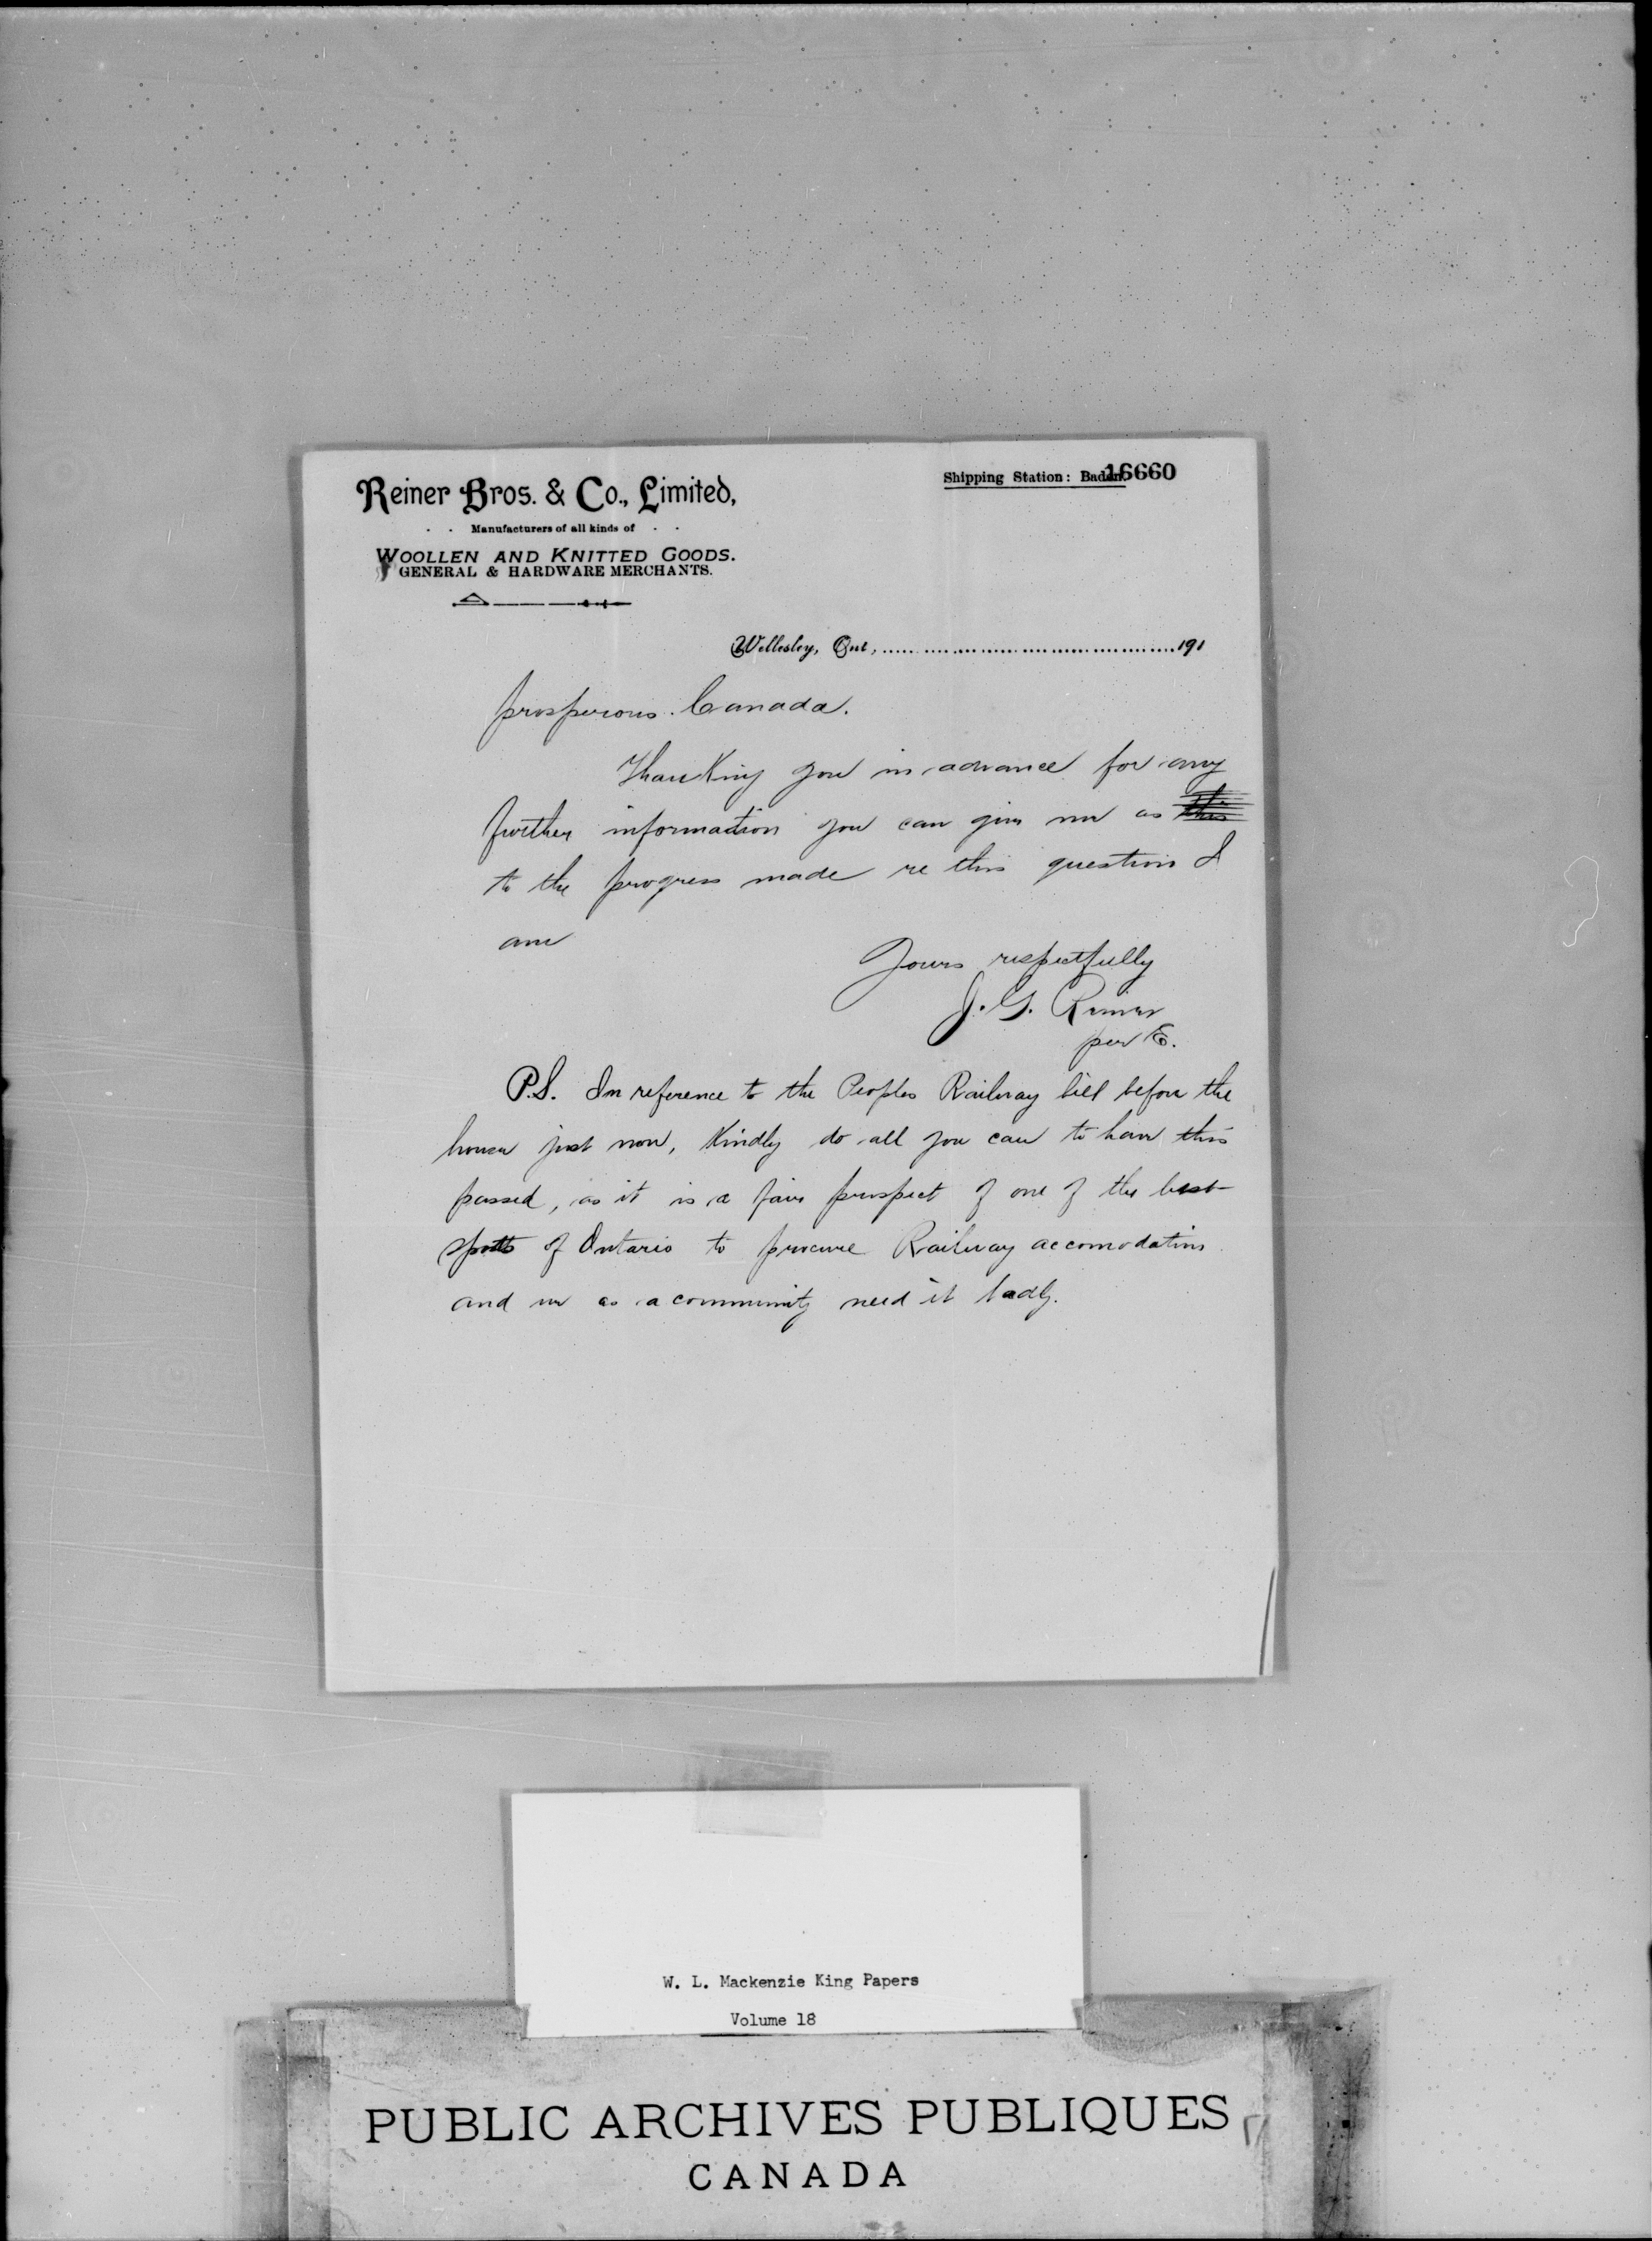 Reiner Bros. & Co., Limited,
Manufacturers of all kinds of
WOOLLEN AND KNITTED GOODS.
GENERAL & HARDWARE MERCHANTS.
Shipping Station: Baden.
16660
Wellesley, Ont., 191
prosperous Canada.
Thanking you in advance for any
further information you can give me as this
to the progress made re this question I
am
Yours respectfully
J. G. Reiner
per E.
P.S. In reference to the Peoples Railway bill before the
house just now, Kindly do all you can to have this
passed, as it is a fair prospect of one of the best
spots of Ontario to procure Railway accomodation
and we as a community need it badly.
W. L. Mackenzie King Papers
Volume 18
PUBLIC ARCHIVES PUBLIQUES
CANADA